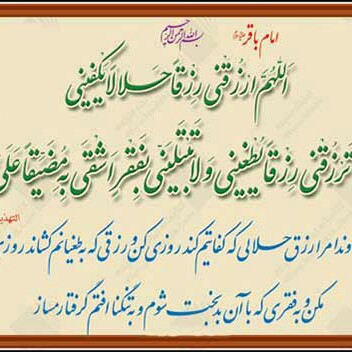 بسم الله الرحمن الرحیم
امام باقر
اَللّهُمَّ ارْزُقْنی رِزْقاً حَلالاً یَکْفینی
تَرْزُقْنی رِزْقاً یُطْغینی وَ لا تَبْتَلِیَنّی بِفَقْرٍ اَشْقی بِهِ مُضَیَّقاً عَلَی
التهذیب
وندا مرا رزق حلالی که کفایتم کند روزی کن و رزقی که به طغیانم کشاند روزی
مکن و به فقری که با آن بدبخت شوم و به تنگنا افتم گرفتار مساز